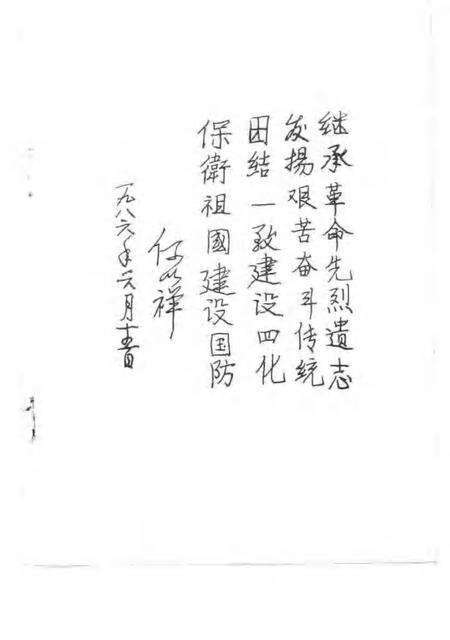 继承革命先烈遗志
发揚艰苦奋斗传統
团结一致建设四化
保衛祖國建设国防
祥
一九八六年六月十五日